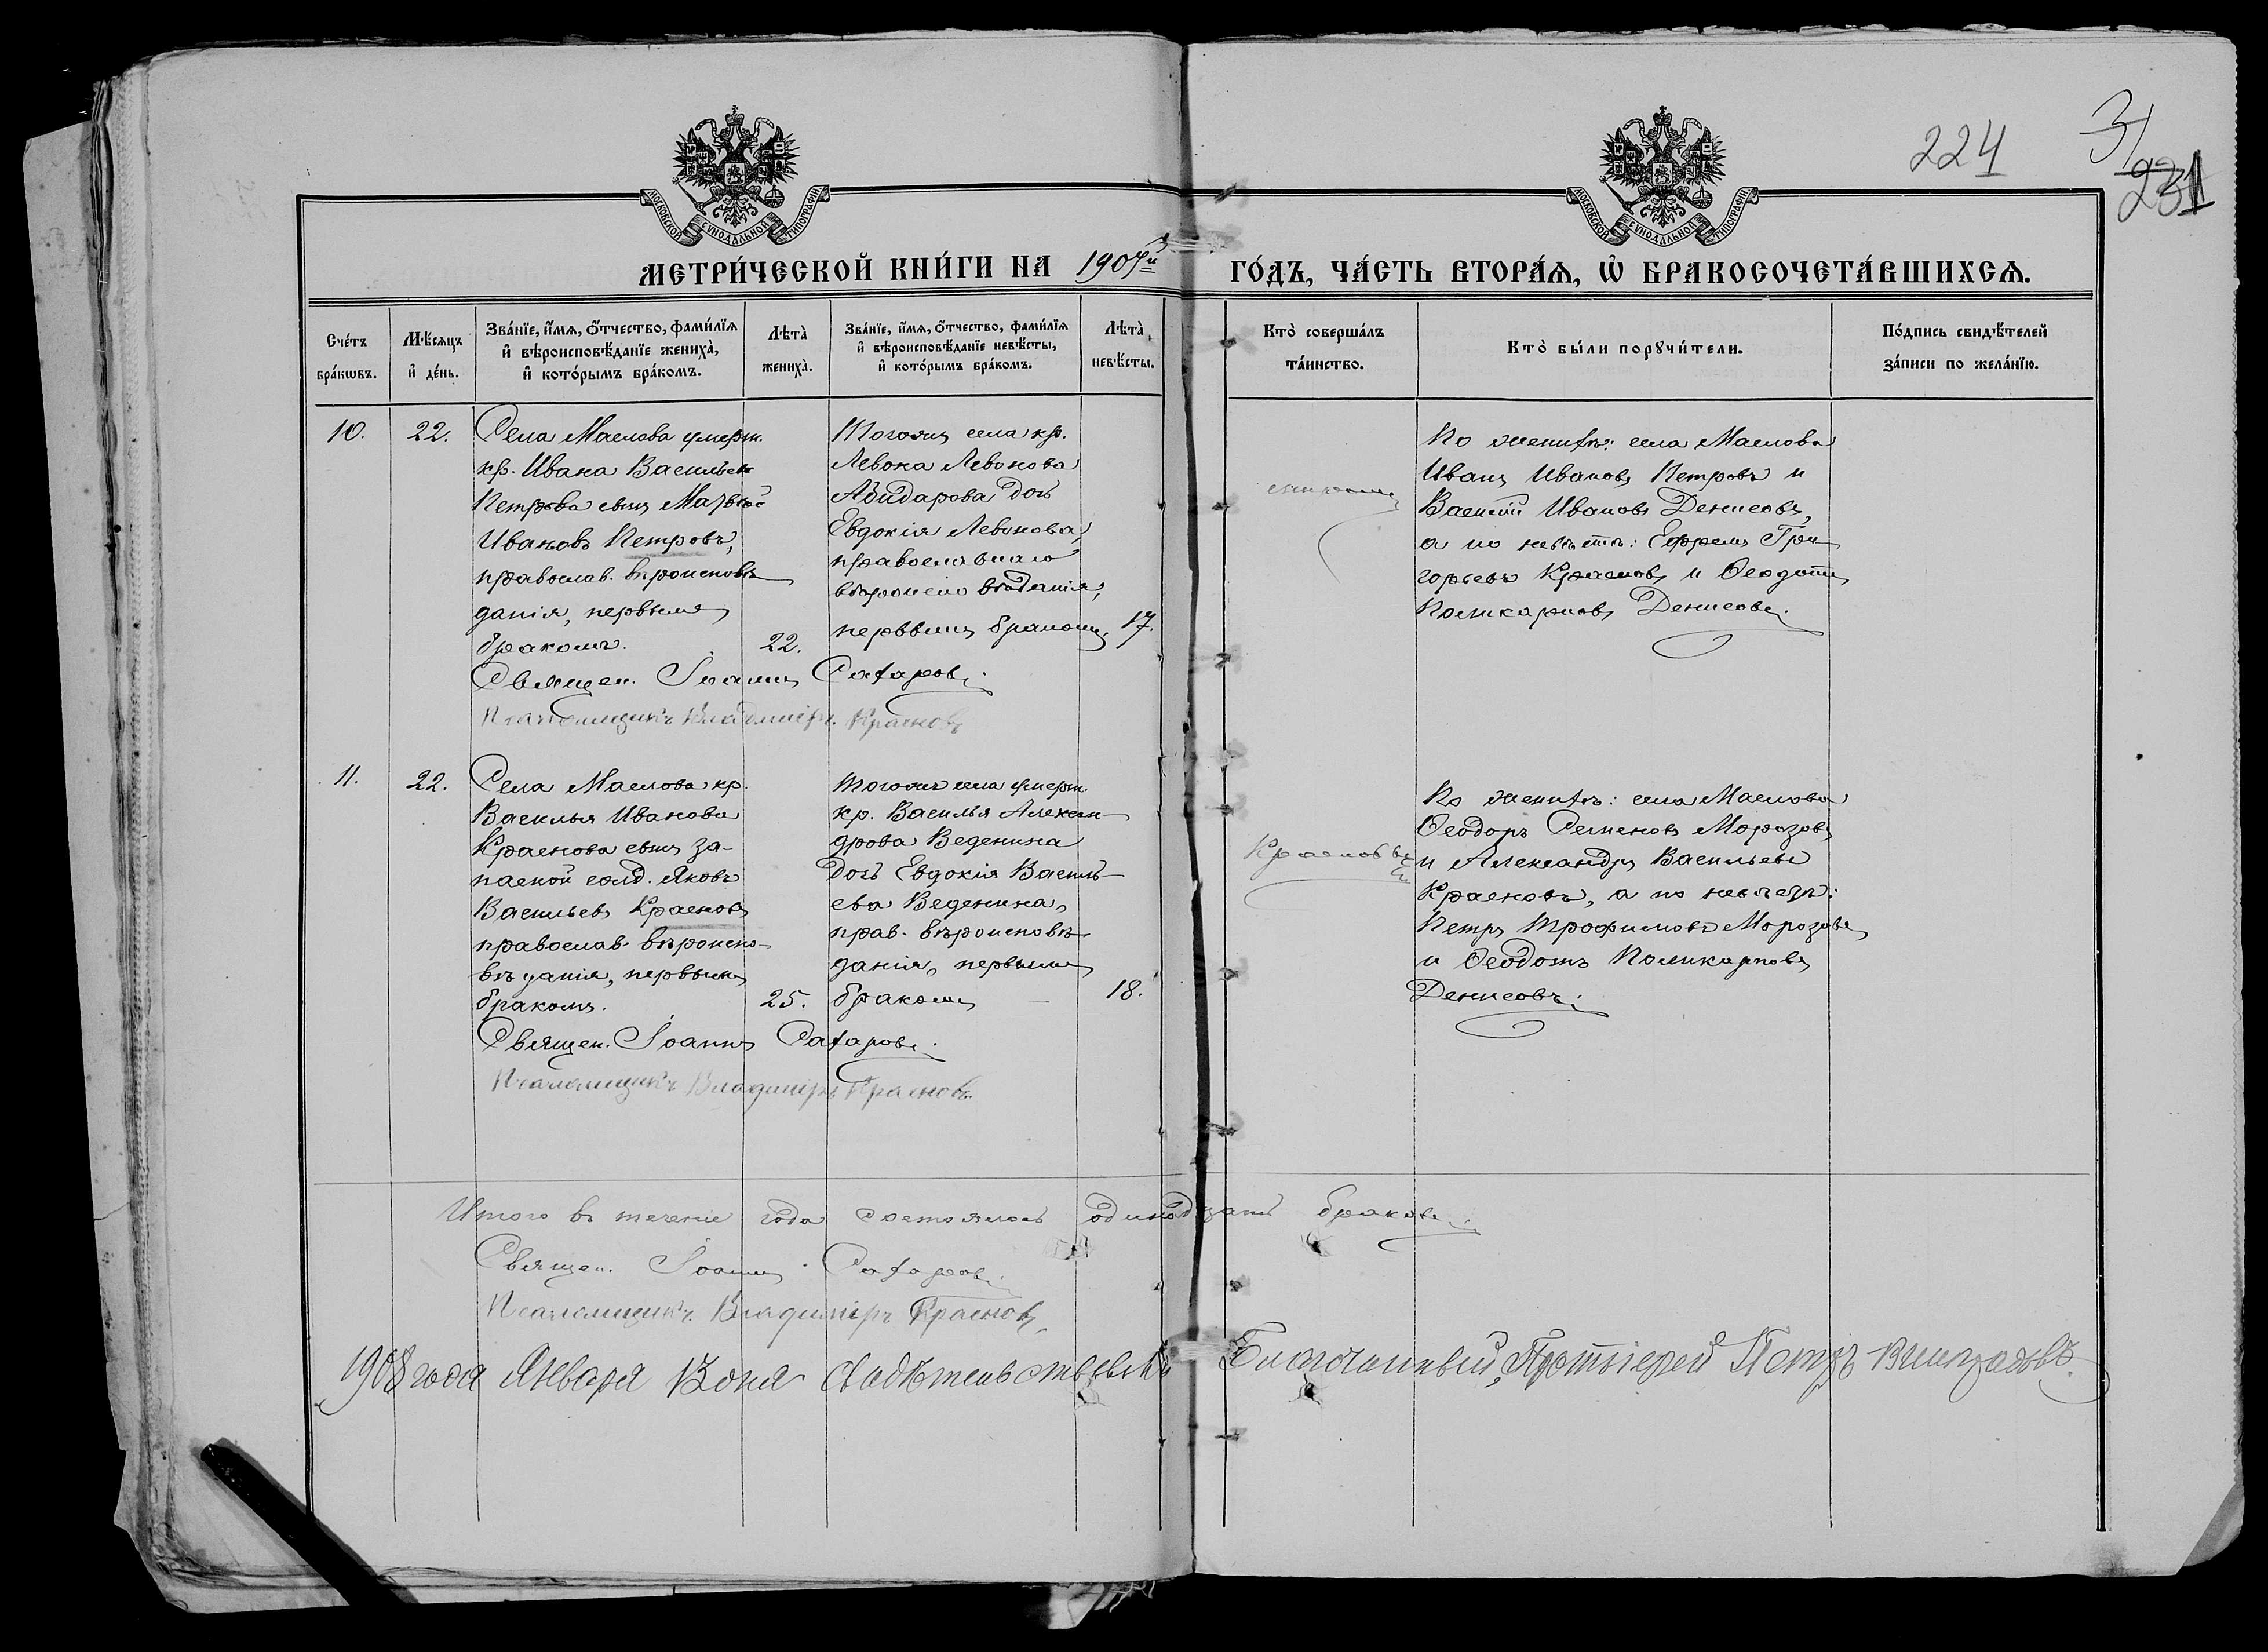 224
31
231
МОСКОВСКОЙ СѴНОДАЛЬНОЙ ТИПОГРАФІИ
МОСКОВСКОЙ СѴНОДАЛЬНОЙ ТИПОГРАФІИ
МЕТРИ́ЧЕСКОЙ КНИ́ГИ НА 1907й ГО́ДЪ, ЧА́СТЬ ВТОРА́Ѧ, Ѡ БРАКОСОЧЕТА́ВШИХСѦ.
Сче́тъ бра́кѡвъ.
Мѣ́сяцъ и҆ де́нь.
Зва́нїе, и҆́мѧ, ѻ҆́тчество, фами́лїѧ и҆ вѣроисповѣ́данїе жениха̀, и҆ кото́рымъ бра́комъ.
Лѣта̀ жениха̀.
Зва́нїе, и҆́мѧ, ѻ҆́тчество, фами́лїѧ и҆ вѣроисповѣ́данїе невѣ́сты, и҆ кото́рымъ бра́комъ.
Лѣта̀ невѣ́сты.
Кто̀ соверша́лъ та́инство.
Кто̀ бы́ли порꙋчи́тели.
По́дпись свидѣ́телей за́писи по жела́нїю.
10.
22.
Села Маслова умерш.
кр. Ивана Васильева
Петрова сынъ Матвѣй
Ивановъ Петровъ,
православ. вѣроисповѣ
данія, первымъ
бракомъ.
22.
Тогожъ села кр.
Левона Левонова
Абидарова дочь
Евдокія Левонова,
православнаго
вѣроисповѣданія,
первымъ бракомъ.
17.
По женихѣ: села Маслова
Иванъ Ивановъ Петровъ и
Василій Ивановъ Денисовъ,
а по невѣстѣ: Ефремъ Гри
горьевъ Красновъ и Ѳеодотъ
Поликарповъ Денисовъ.
Священ. Іоаннъ Сахаровъ.
Псаломщикъ Владиміръ Красновъ
11.
22.
Села Маслова кр.
Василья Иванова
Краснова сынъ за-
пасной солд. Яковъ
Васильевъ Красновъ
православ. вѣроиспо-
вѣданія, первымъ
бракомъ.
25.
Тогожъ села умерш.
кр. Василья Алексан
дрова Веденина
дочь Евдокія Василь-
ева Веденина,
прав. вѣроисповѣ-
данія, первымъ
бракомъ
18.
Красновъ
По женихѣ: села Маслова
Ѳеодоръ Семеновъ Морозовъ
и Александръ Васильевъ
Красновъ, а по невѣстѣ:
Петръ Трофимовъ Морозовъ
и Ѳеодотъ Поликарповъ
Денисовъ.
Священ. Іоаннъ Сахаровъ.
Псаломщикъ Владиміръ Красновъ.
Итого въ теченіе года состоялось одинадцать браковъ.
Священ. Іоаннъ Сахаровъ.
Псаломщикъ Владиміръ Красновъ.
1908 года Января дня свидѣтельствовалъ Благочинный, Протоіерей Петръ Виноградовъ.